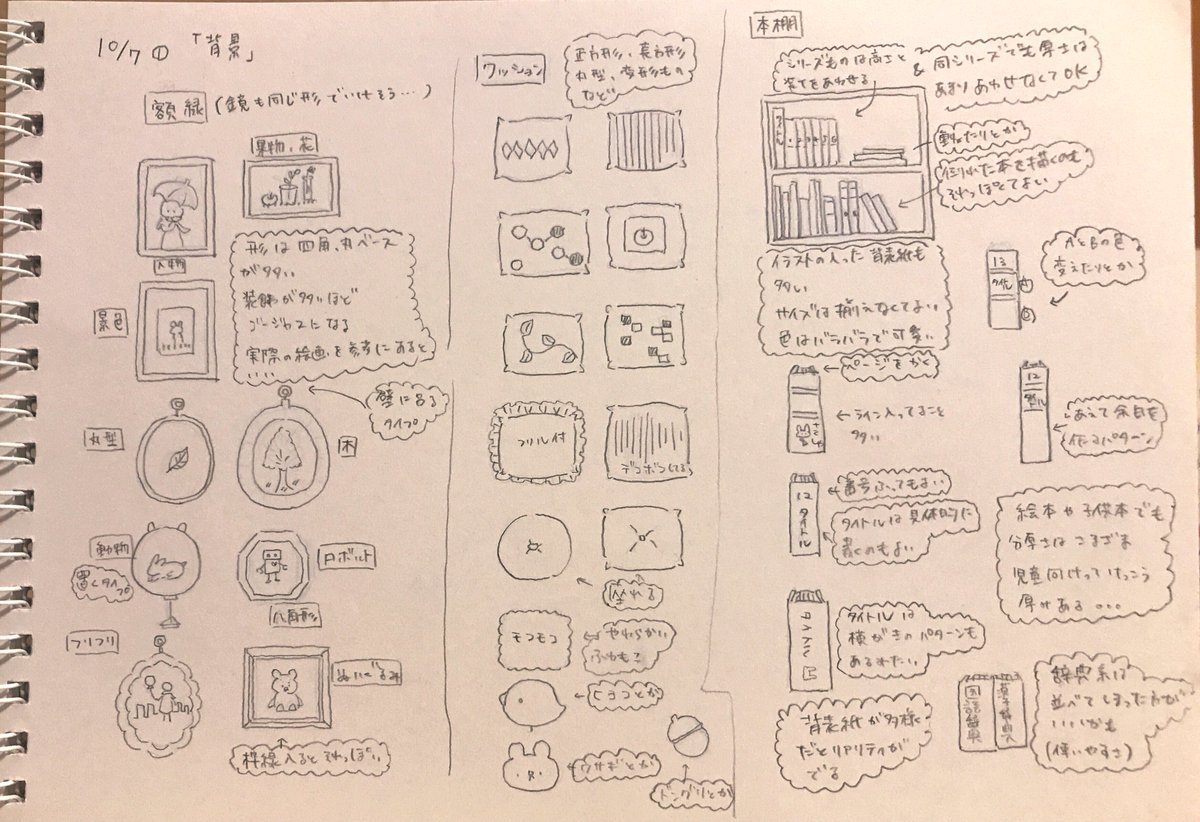 10/7 ① 「背景」
額縁 (鏡も同じ形でいけそう…)
果物、花
人物
形は四角、丸ベース
が多い
装飾が多いほど
ゴージャスになる
実際の絵画を参考にあると
いい
景色
壁に吊る
タイプ
丸型
木
動物
置くタイプ
ロボット
八角形
フリフリ
ぬいぐるみ
枠線入るとそれっぽい
クッション
正方形、長方形
丸型、変形もの
など
フリル付
デコボコしてる
坐れる
モコモコ
やわらかい
ふわもこ
ヒヨコとか
ウサギとか
ドングリとか
本棚
シリーズものは高さと
窓でをあわせる
& 同シリーズでも厚さは
あまりあわせなくてOK
タイトル
1 2 3 4 5 6
たりとか
倒れた本を描くのも
それっぽくてよい
イラストの入った背表紙も
多い
サイズは揃えなくてよい
色はバラバラで可愛い
13
タイトル
AとBの色
変えたりとか
A
B
ページをかく
ライン入ってること
多い
12
あえて余白を
作るパターン
番号ふってもよい
12 タイトル
タイトルは具体的に
書くのもよい
絵本や子供本でも
分厚さはさまざま
児童向けってけっこう
厚みある…
タイトル
タイトルは
横がきのパターンも
あるみたい
背表紙が多様
だとリアリティが
でる
国語辞典
辞典系は
並べてしまった方が
いいかも
(使いやすさ)